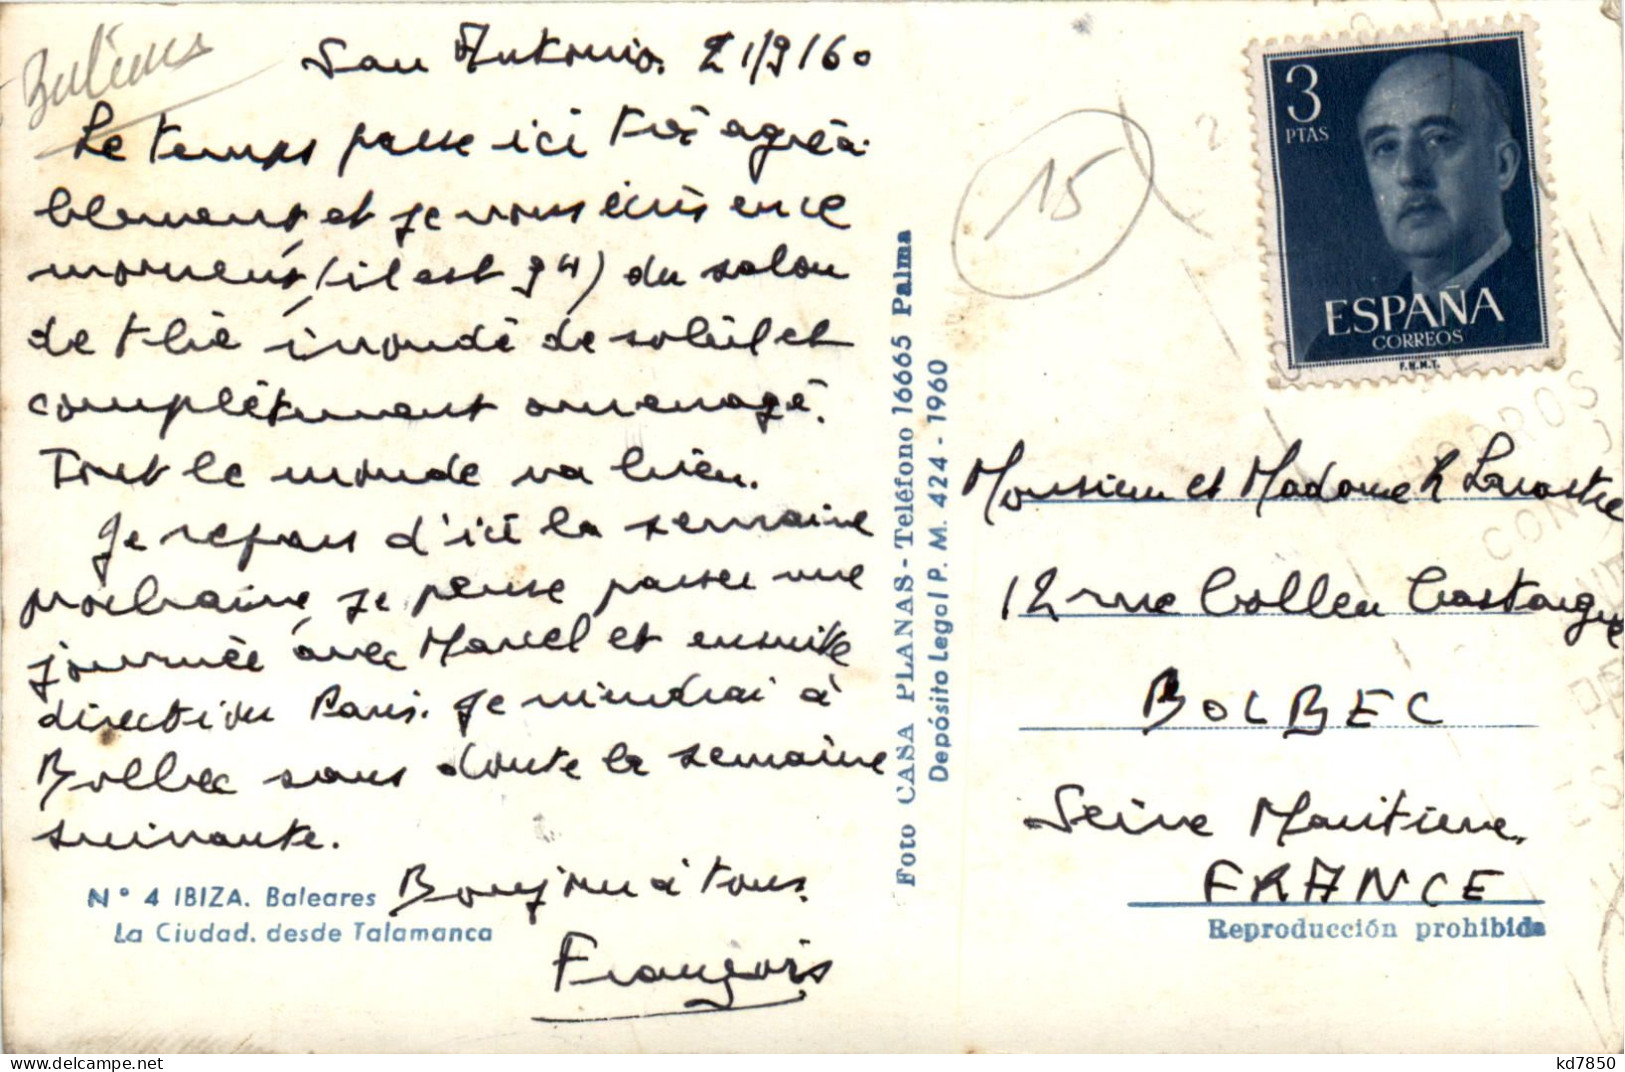 San Antonio. 21/9/60
Le temps passe ici très agréa-
blement, et je vous écris en ce
moment, (il est 9H) du salon
de thé inondé de soleil et
complètement aménagé.
Tout le monde va bien.
Je repars d'ici la semaine
prochaine, je pense passer une
journée avec Marcel et ensuite
direction Paris. Je viendrai à
Bolbec sans doute la semaine
suivante.
Bonjour à tous.
François
Nº 4 IBIZA. Baleares
La Ciudad. desde Talamanca
Foto CASA PLANAS - Teléfono 16665 Palma
Depósito Legal P. M. 424 - 1960
15
3
PTAS
ESPAÑA
CORREOS
F.N.M.T.
Monsieur et Madame R Lacostre
12 rue Collen Castaigne
BOLBEC
Seine Maritime
FRANCE
Reproducción prohibida
kd7850